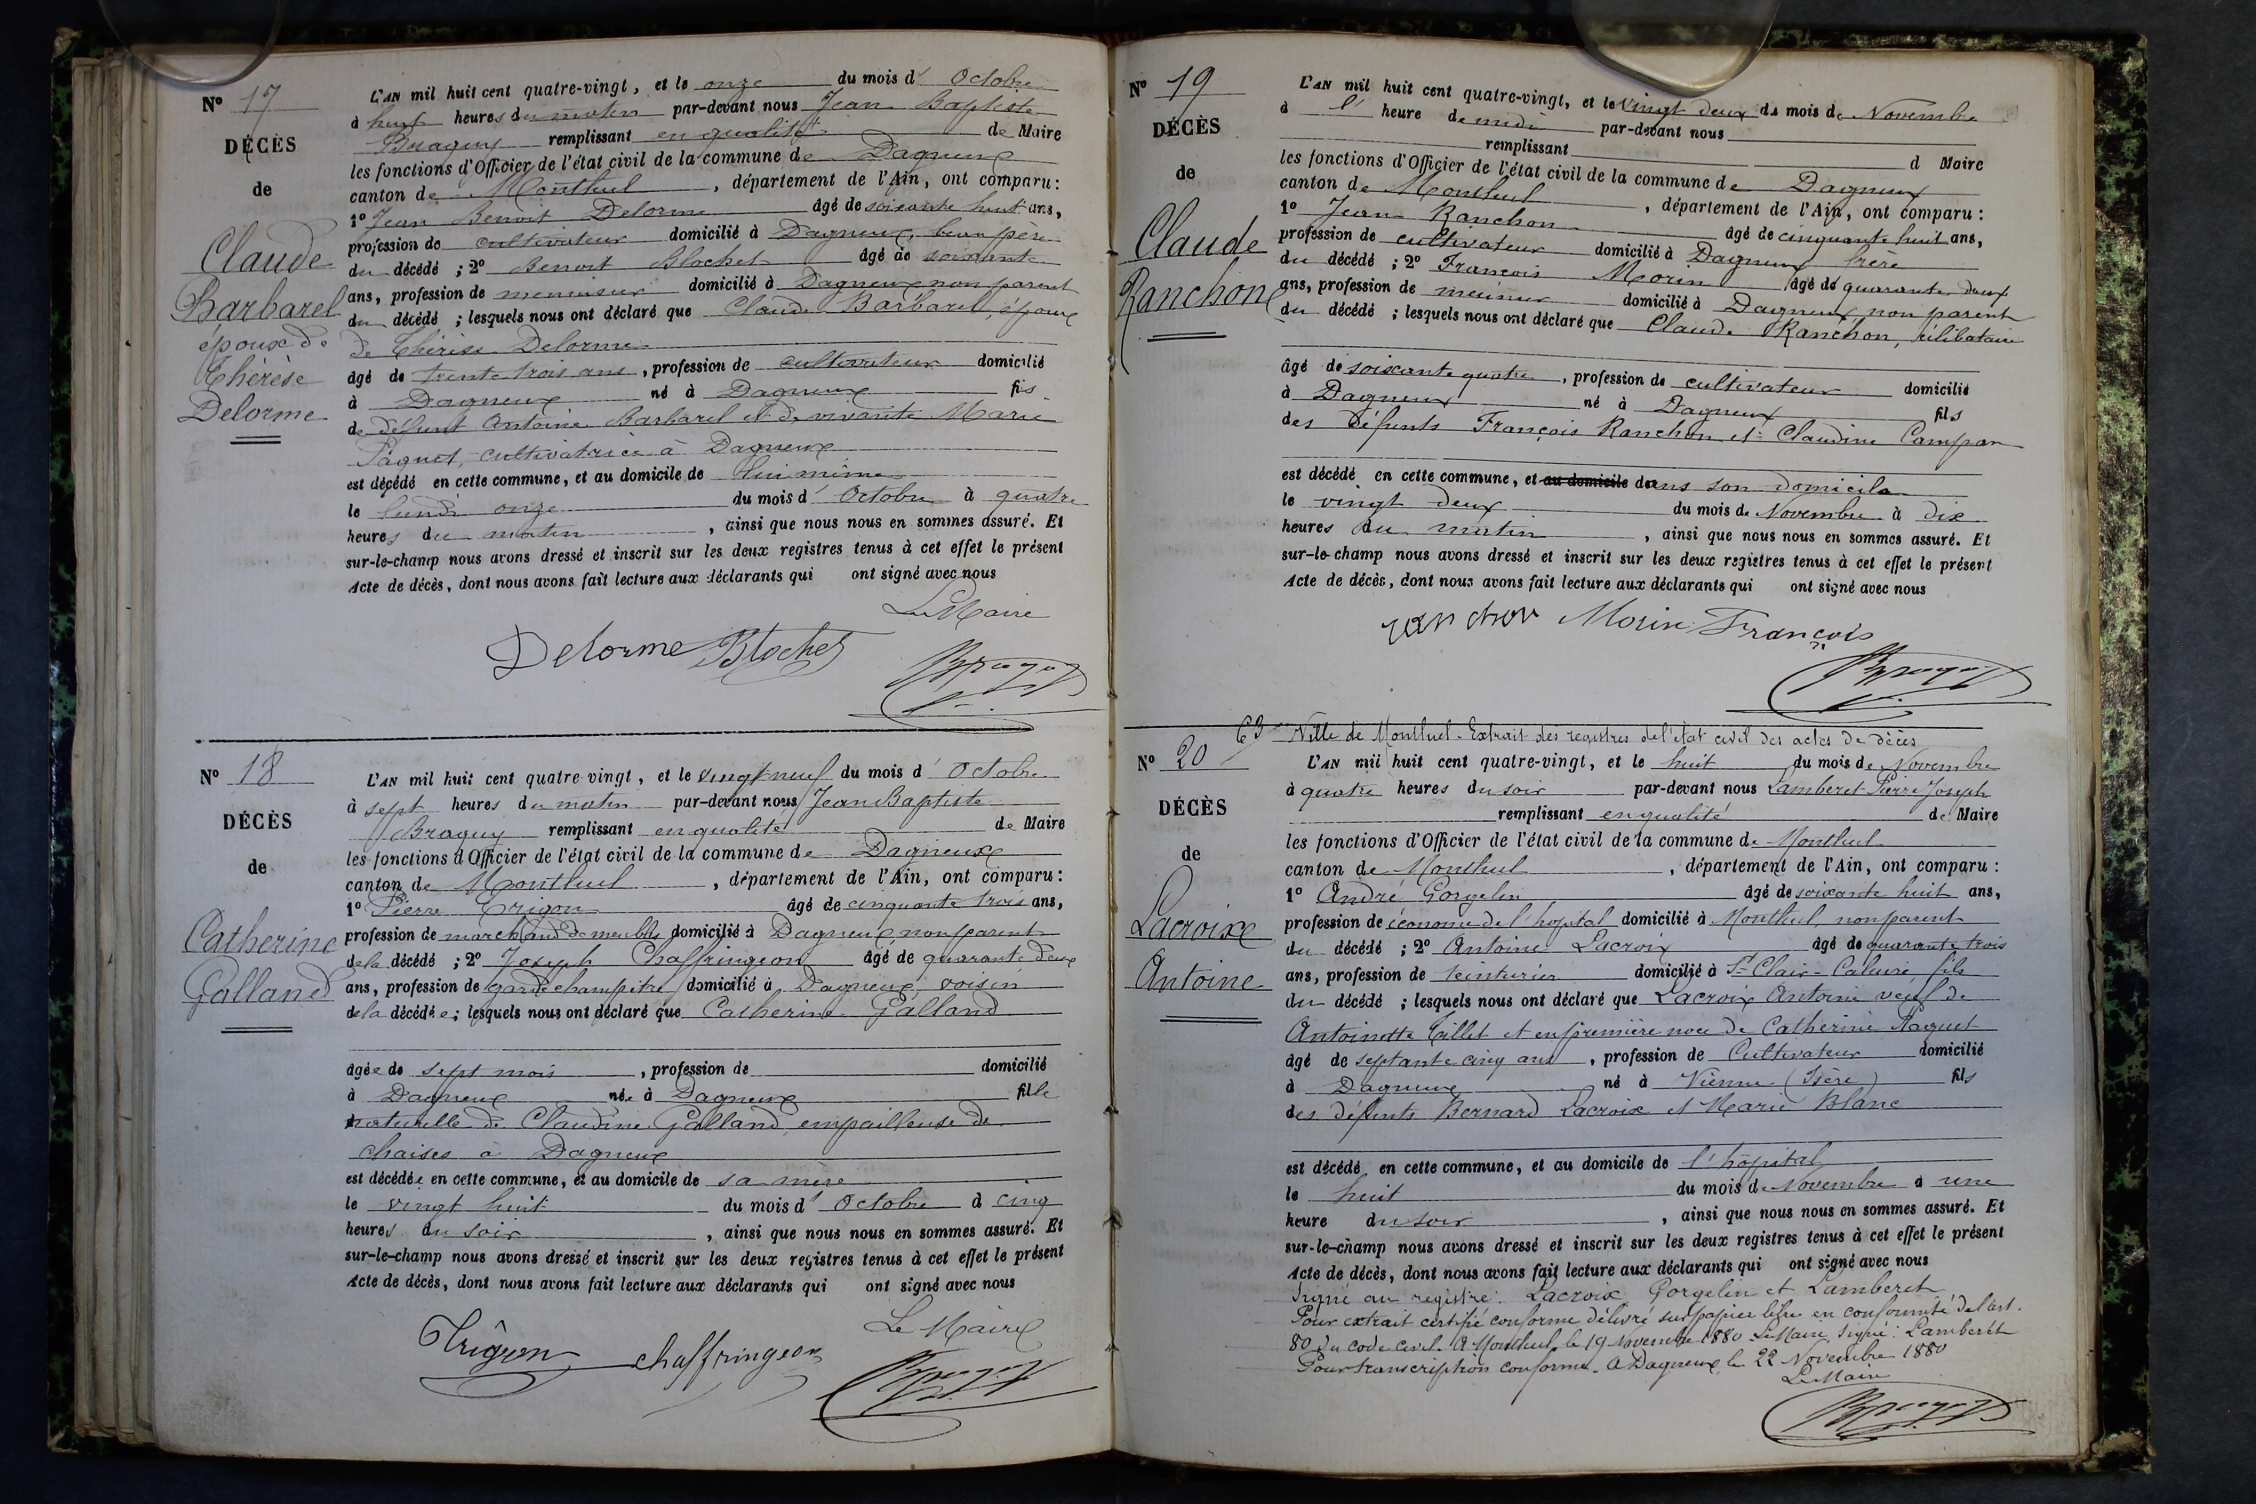 N° 17
DÉCÈS
de
Claude
Barbarel
époux de
Thérèse
Delorme
L'AN mil huit cent quatre-vingt, et le onze du mois d' Octobre
à huit heures du matin par-devant nous Jean Baptiste
Braguy remplissant en qualité de Maire
les fonctions d'Officier de l'état civil de la commune de Dagneux
canton de Montluel, département de l'Ain, ont comparu :
1° Jean Benoit Delorme âgé de soixante huit ans,
profession de cultivateur domicilié à Dagneux, beau père
du décédé ; 2° Benoit Blochet âgé de soixante
ans, profession de menuisier domicilié à Dagneux non parent
du décédé ; lesquels nous ont déclaré que Claude Barbarel, époux
de Thérèse Delorme
âgé de trente trois ans, profession de cultivateur domicilié
à Dagneux né à Dagneux fils
de défunt Antoine Barbarel et de vivante Marie
Paquet, cultivatrice à Dagneux
est décédé en cette commune, et au domicile de lui même
le lundi onze du mois d' Octobre à quatre
heures du matin, ainsi que nous nous en sommes assuré. Et
sur-le-champ nous avons dressé et inscrit sur les deux registres tenus à cet effet le présent
Acte de décès, dont nous avons fait lecture aux déclarants qui ont signé avec nous
Le Maire
Delorme Blochet
N° 18
DÉCÈS
de
Catherine
Galland
L'AN mil huit cent quatre-vingt, et le vingt neuf du mois d' Octobre
à sept heures du matin par-devant nous Jean Baptiste
Braguy remplissant en qualité de Maire
les fonctions d'Officier de l'état civil de la commune de Dagneux
canton de Montluel, département de l'Ain, ont comparu :
1° Pierre Trigon âgé de cinquante trois ans,
profession de marchand de meubles domicilié à Dagneux non parent
de la décédé ; 2° Joseph Chaffringeon âgé de quarante deux
ans, profession de garde champêtre domicilié à Dagneux, voisin
de la décédée ; lesquels nous ont déclaré que Catherine Galland
âgée de sept mois, profession de domicilié
à Dagneux née à Dagneux fille
naturelle de Claudine Galland, empailleuse de
chaises à Dagneux
est décédée en cette commune, et au domicile de sa mère
le vingt huit du mois d' Octobre à cinq
heures du soir, ainsi que nous nous en sommes assuré. Et
sur-le-champ nous avons dressé et inscrit sur les deux registres tenus à cet effet le présent
Acte de décès, dont nous avons fait lecture aux déclarants qui ont signé avec nous
Le Maire
Trigon chaffringeon
N° 19
DÉCÈS
de
Claude
Ranchon
L'AN mil huit cent quatre-vingt, et le vingt deux du mois de Novembre
à l' heure de midi par-devant nous
remplissant d Maire
les fonctions d'Officier de l'état civil de la commune de Dagneux
canton de Montluel, département de l'Ain, ont comparu :
1° Jean Ranchon âgé de cinquante huit ans,
profession de cultivateur domicilié à Dagneux frère
du décédé ; 2° François Morin âgé de quarante deux
ans, profession de meunier domicilié à Dagneux non parent
du décédé ; lesquels nous ont déclaré que Claude Ranchon, célibataire
âgé de soixante quatre, profession de cultivateur domicilié
à Dagneux né à Dagneux fils
des défunts François Ranchon et Claudine Campan
est décédé en cette commune, et au domicile dans son domicile
le vingt deux du mois de Novembre à dix
heures du matin, ainsi que nous nous en sommes assuré. Et
sur-le-champ nous avons dressé et inscrit sur les deux registres tenus à cet effet le présent
Acte de décès, dont nous avons fait lecture aux déclarants qui ont signé avec nous
ranchon Morin François
Ville de Montluel - Extrait des registres de l'état civil des actes de décès
N° 20
DÉCÈS
de
Lacroix
Antoine
L'AN mil huit cent quatre-vingt, et le huit du mois de Novembre
à quatre heures du soir par-devant nous Lamberet Pierre Joseph
remplissant en qualité de Maire
les fonctions d'Officier de l'état civil de la commune de Montluel
canton de Montluel, département de l'Ain, ont comparu :
1° André Gorgelin âgé de soixante huit ans,
profession de économe de l'hopital domicilié à Montluel, non parent
du décédé ; 2° Antoine Lacroix âgé de quarante trois
ans, profession de teinturier domicilié à St Clair-Caluire fils
du décédé ; lesquels nous ont déclaré que Lacroix Antoine veuf de
Antoinette Tillet et en première noce de Catherine Raquet
âgé de septante cinq ans, profession de Cultivateur domicilié
à Dagneux né à Vienne (Isère) fils
des défunts Bernard Lacroix et Marie Blanc
est décédé en cette commune, et au domicile de l'hôpital
le huit du mois de Novembre à une
heure du soir, ainsi que nous nous en sommes assuré. Et
sur-le-champ nous avons dressé et inscrit sur les deux registres tenus à cet effet le présent
Acte de décès, dont nous avons fait lecture aux déclarants qui ont signé avec nous
Signé au registre : Lacroix Gorgelin et Lamberet
Pour extrait certifié conforme délivré sur papier libre en conformité de l'art.
80 du code civil. A Montluel le 19 Novembre 1880 Le Maire, Signé : Lamberet
Pour transcription conforme. A Dagneux le 22 Novembre 1880
Le Maire